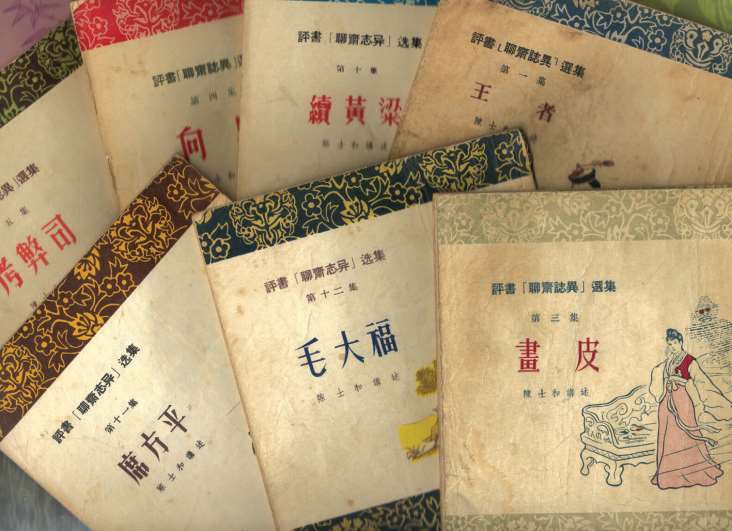 異」選集
五集
考弊司
評書「聊齋誌異」選集
第四集
向
評書「聊齋志异」选集
第十集
續黃粱
陈士和講述
評書「聊齋誌異」選集
第一集
王者
陳士和講
評書「聊齋志异」选集
第十一集
席方平
陈士和講述
評書「聊齋志异」选集
第十二集
毛大福
陈士和講述
評書「聊齋誌異」選集
第三集
畫皮
陳士和講述